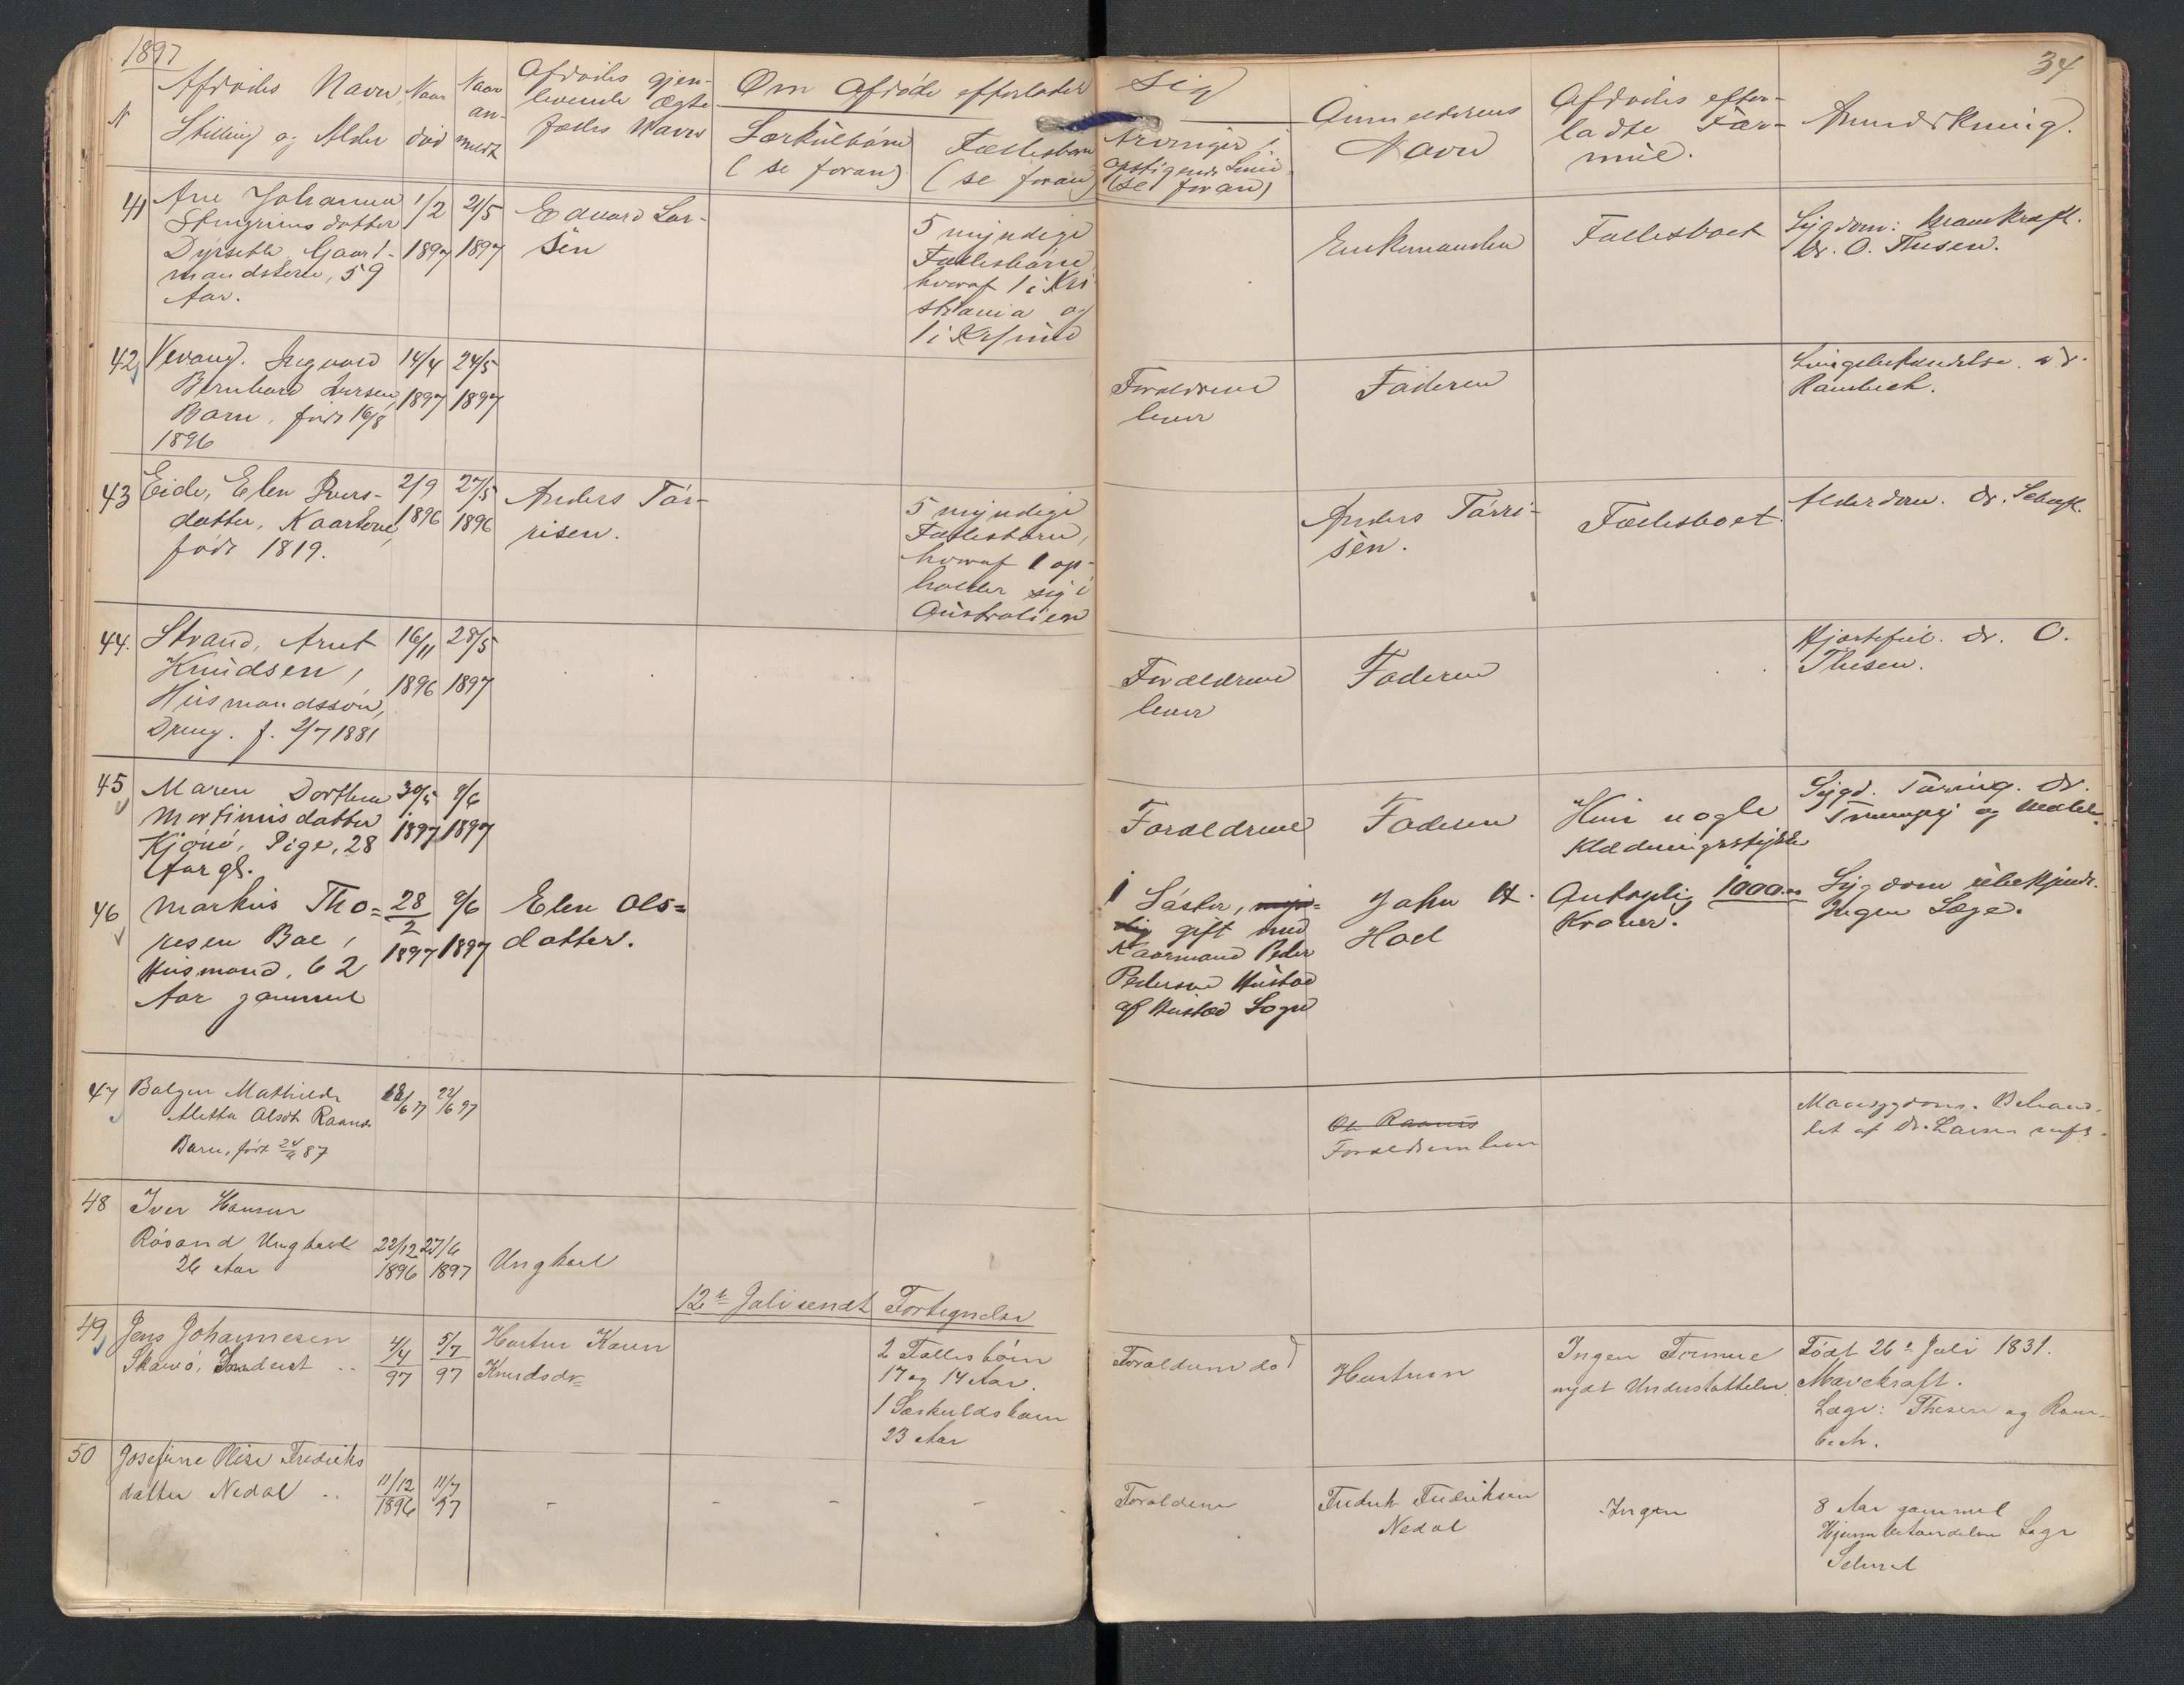 1897
34
N
Afdødes Navn,
Stilling og Alder
Naar
død
Naar
an-
meldt
Afdødes gjen-
levende Ægte-
fælles Navn
Om Afdøde efterlader sig
Særkulbørn
(se foran)
Fællesbørn
(se foran)
Arvinger i
opstigende Linie
(se foran)
Anmelderens
Navn
Afdødes efter-
ladte For-
mue.
Anmerkning.
41
Ane Johanna
Steingrimsdatter
Dyrseth, Gaard-
mandskone, 59
Aar.
1/2
1897
21/5
1897
Edvard Lar-
sen
5 myndige
Fællesbørn,
hvoraf 1 i Kri
stiania og
1 i Krsund
Enkemanden
Fællesboet
Sygdom: Mavekræft.
Dr. O. Thesen.
42
Vevang. Ingvard
Bernhard Iversen,
Barn, født 16/8
1896
14/4
1897
24/5
1897
Forældrene
lever
Faderen
Lungebetændelse. Dr.
Rambech.
43
Eide, Elen Ivers-
datter, Kaarkone,
født 1819.
2/9
1896
27/5
1896
Anders Tør-
risen.
5 myndige
Fællesbørn,
hvoraf 1 op-
holder sig i
Australien
Anders Tørri-
sen.
Fællesboet.
Alderdom. Dr.
44.
Strand, Arnt
Knudsen,
Husmandssøn,
Dreng. f. 2/7 1881
16/11
1896
28/5
1897
Forældrene
lever
Faderen
Hjertefeil. Dr. O.
Thesen.
45
Maren Dorthea
Mortinusdatter
Kjønø, Pige, 28
Aar gl.
30/5
1897
9/6
1897
Forældrene
Faderen
Kun nogle
Klædningsstykker
Sygd. Tæring. Dr.
og
46
Markus Tho=
resen Bae,
Husmand, 62
Aar gammel
28/2
1897
9/6
1897
Elen Ols=
datter.
1 Søster,
gift med
Kaarmand Peder
Pedersen Hustad
af Hustad Sogn
John A.
Hoel
Antagelig 1000.00
Kroner.
Sygdom ubekjendt.
Ingen Læge.
47
Bolgen Mathilde
Aletta Olsdt
Barn, født 24/6 87
18/6 97
22/6 97
Forældrene lever
Mavesygdom. Behand-
let af Dr.
48
Iver Hansen
Røsand Ungkarl
26 Aar
22/12
1896
27/6
1897
Ungkarl
12te Juli sendt Fortegnelse
49
Jens Johannesen
Skarvø, Inderst ..
4/4
97
5/7
97
Hustru Karen
Knudsdr=
2 Fællesbørn
17 og 14 Aar.
1 Særkuldsbarn
23 Aar
Forældrene død
Hustruen
Ingen Formue
nydt Understøttelse
Født 26de Juli 1831.
Mavekræft.
Læge: Thesen og Ram-
bech.
50
Josefine Olise Fredriks
datter Nedal ..
11/12
1896
11/7
97
-
-
-
-
Forældrene
Fredrik Fredriksen
Nedal
Ingen
8 Aar gammel
Hjernebetændelse Læge